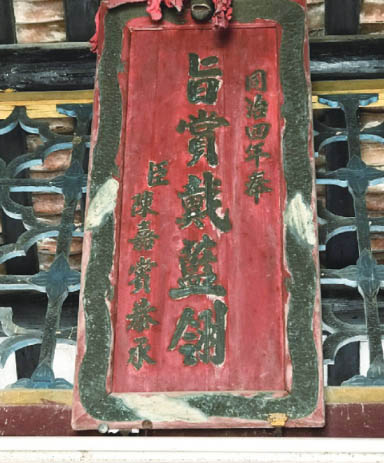 同治四年奉
旨賞戴藍翎
臣陳嘉賓恭承